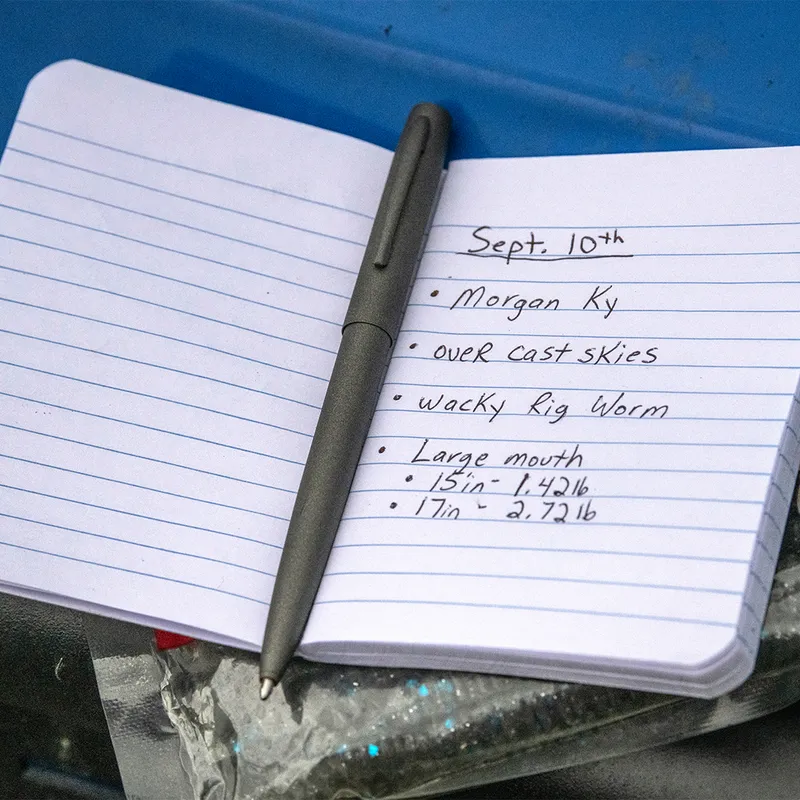 Sept. 10th
• Morgan Ky
• over cast skies
• wacky Rig Worm
• Large mouth
• 15in - 1.42lb
• 17in - 2.72lb